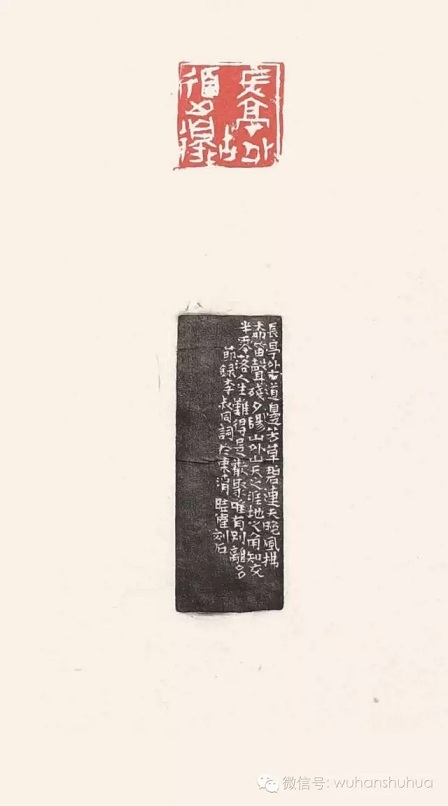 長亭外古
長亭外古道邊芳草碧連天晚風拂
柳笛聲殘夕陽山外山天之涯地之角知交
半零落人生難得是歡聚唯有別離多
節錄李叔同詞於東 刻石
微信号: wuhanshuhua